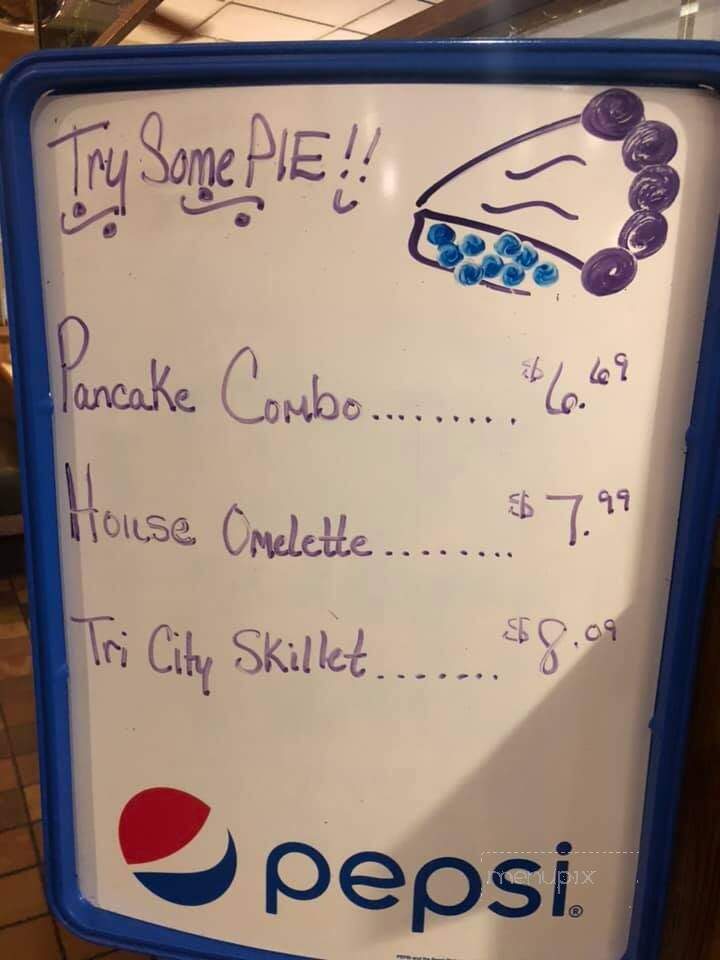 Try Some PIE!!
Pancake Combo......... $6.69
House Omelette........ $7.99
Tri City Skillet....... $8.09
pepsi®
menupix